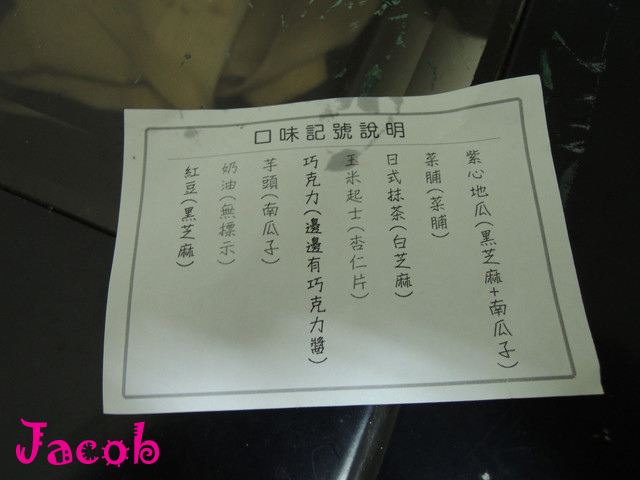 口味記號說明
紫心地瓜(黑芝麻+南瓜子)
菜脯(菜脯)
日式抹茶(白芝麻)
玉米起士(杏仁片)
巧克力(邊邊有巧克力醬)
芋頭(南瓜子)
奶油(無標示)
紅豆(黑芝麻)
Jacob